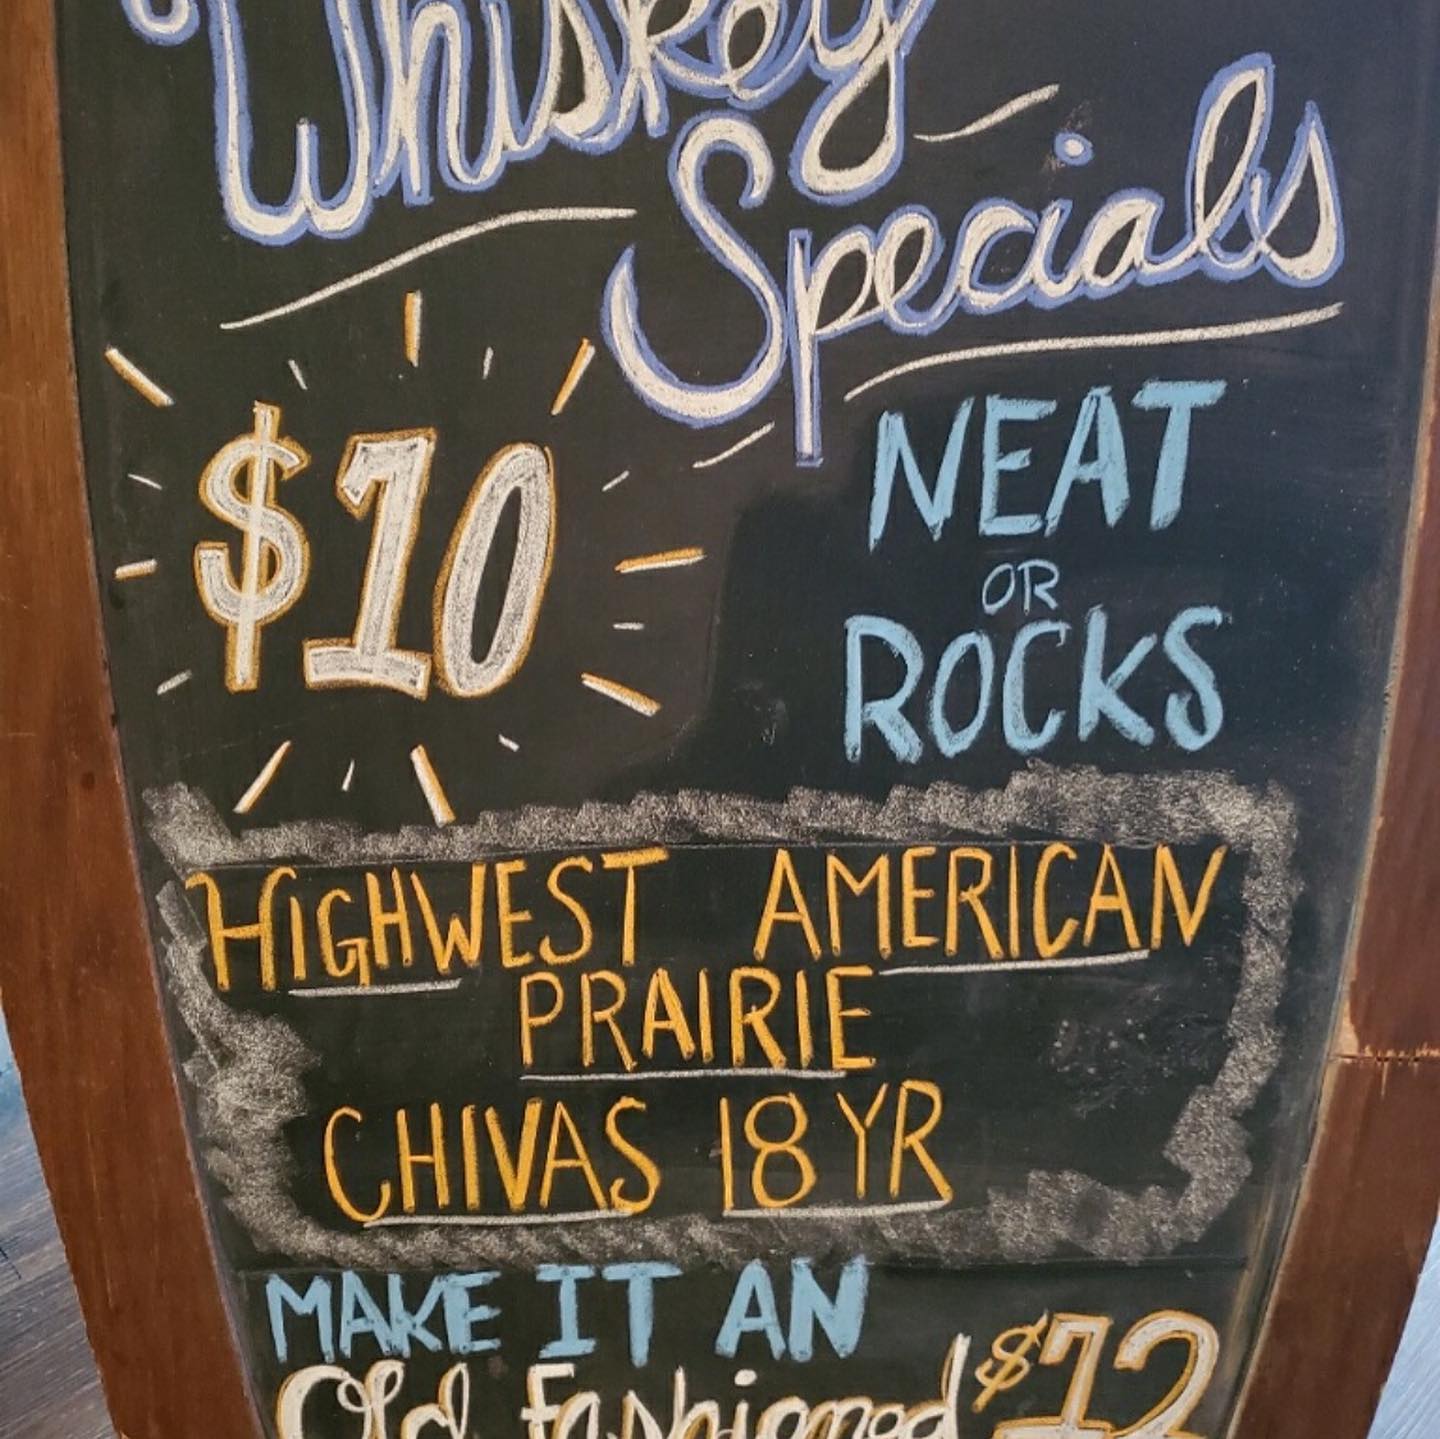 Whiskey
Specials
$10
NEAT
OR
ROCKS
HIGHWEST AMERICAN
PRAIRIE
CHIVAS 18 YR
MAKE IT AN
Old Fashioned $12